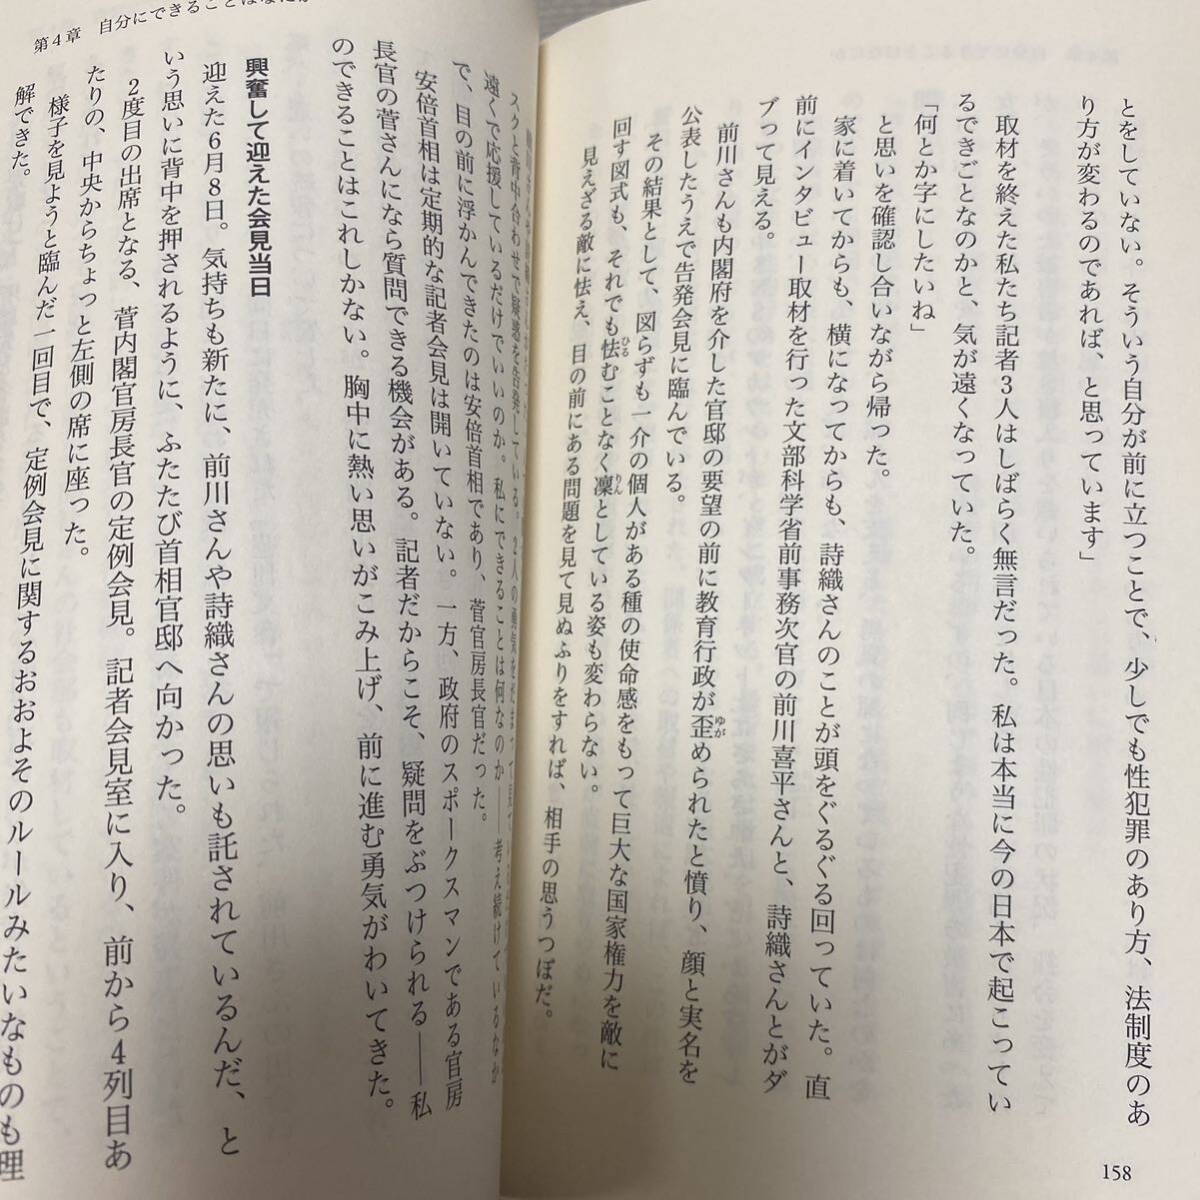 とをしていない。そういう自分が前に立つことで、少しでも性犯罪のあり方、法制度のあ
り方が変わるのであれば、と思っています」
取材を終えた私たち記者3人はしばらく無言だった。私は本当に今の日本で起こってい
るできごとなのかと、気が遠くなっていた。
「何とか字にしたいね」
と思いを確認し合いながら帰った。
家に着いてからも、横になってからも、詩織さんのことが頭をぐるぐる回っていた。直
前にインタビュー取材を行った文部科学省前事務次官の前川喜平さんと、詩織さんとがダ
ブって見える。
前川さんも内閣府を介した官邸の要望の前に教育行政が歪められたと憤り、顔と実名を
公表したうえで告発会見に臨んでいる。
その結果として、図らずも一介の個人がある種の使命感をもって巨大な国家権力を敵に
回す図式も、それでも怯むことなく凜としている姿も変わらない。
見えざる敵に怯え、目の前にある問題を見て見ぬふりをすれば、相手の思うつぼだ。
158
第4章 自分にできることはなにか
スクと背中合わせで疑惑を告発している。2人の勇気を
遠くで応援しているだけでいいのか。私にできることは何なのか――考え続けているなか
で、目の前に浮かんできたのは安倍首相であり、菅官房長官だった。
安倍首相は定期的な記者会見は開いていない。一方、政府のスポークスマンである官房
長官の菅さんになら質問できる機会がある。記者だからこそ、疑問をぶつけられる――私
のできることはこれしかない。胸中に熱い思いがこみ上げ、前に進む勇気がわいてきた。
興奮して迎えた会見当日
迎えた6月8日。気持ちも新たに、前川さんや詩織さんの思いも託されているんだ、と
いう思いに背中を押されるように、ふたたび首相官邸へ向かった。
2度目の出席となる、菅内閣官房長官の定例会見。記者会見室に入り、前から4列目あ
たりの、中央からちょっと左側の席に座った。
様子を見ようと臨んだ一回目で、定例会見に関するおおよそのルールみたいなものも理
解できた。